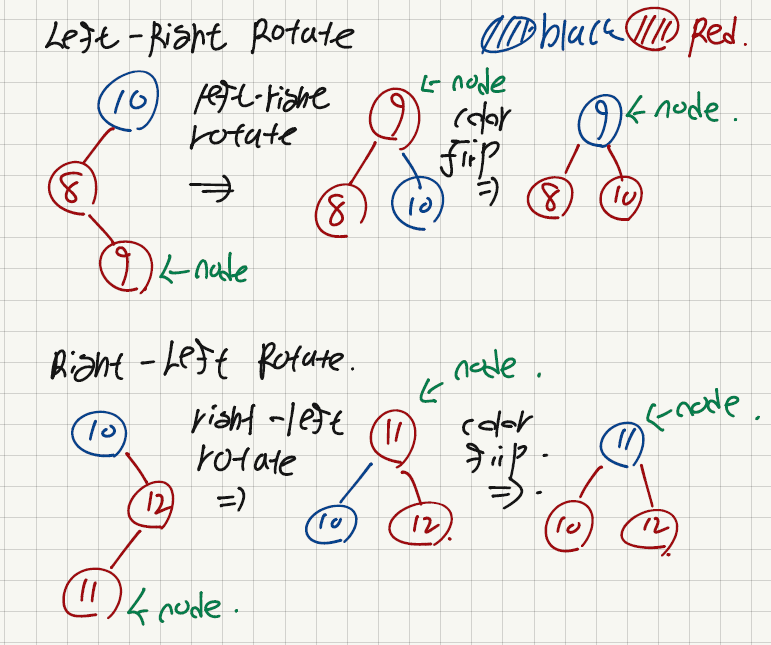 Left-Right Rotate
black Red.
10
left-right
rotate
⇒
8
9
←node
9
←node
color
flip
⇒
8
10
9
←node.
8
10
Right-Left Rotate.
10
right-left
rotate
⇒
12
11
←node.
11
←node.
color
flip.
⇒.
10
12.
11
←node.
10
12.